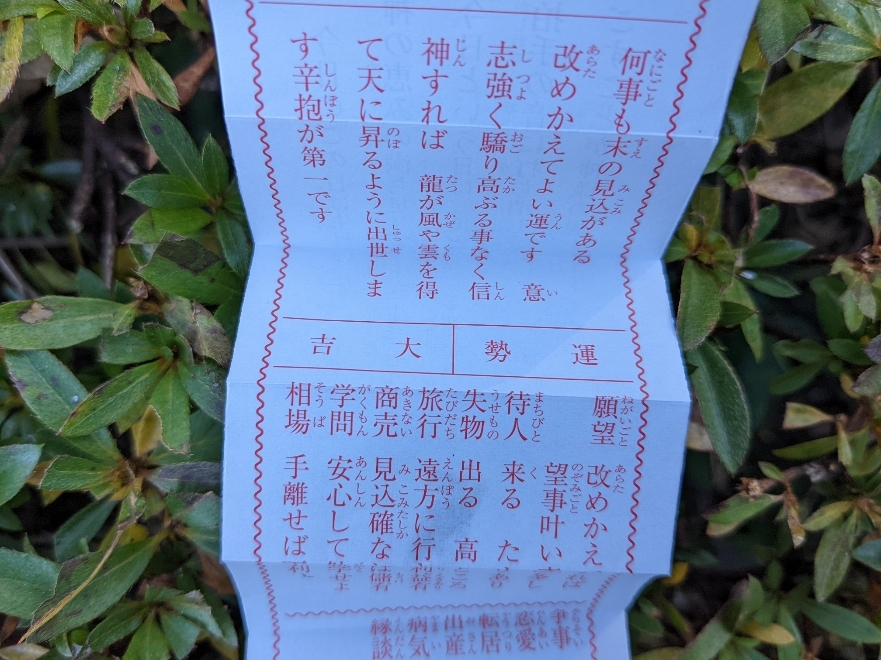 何事も末の見込がある
改めかえてよい運です 意
志強く驕り高ぶる事なく信
神すれば 龍が風や雲を得
て天に昇るように出世しま
す辛抱が第一です
運勢 大吉
願望 改めかえ
望事叶い
待人 来る
失物 出る 高
旅行 遠方に行
商売 見込確な
学問 安心して
相場 手離せば
争事
恋愛
転居
出産
病気
縁談